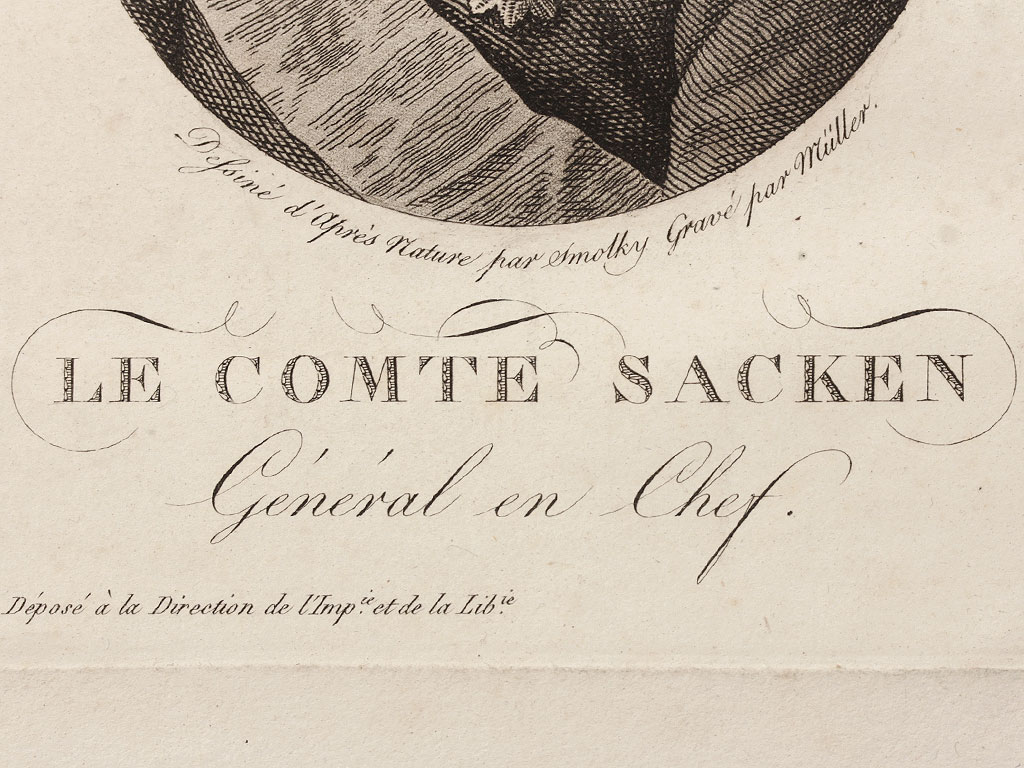 Dessiné d'Après Nature par Smolky Gravé par Müller.
LE COMTE SACKEN
Général en Chef.
Déposé à la Direction de l'Imp.ie et de la Lib.ie